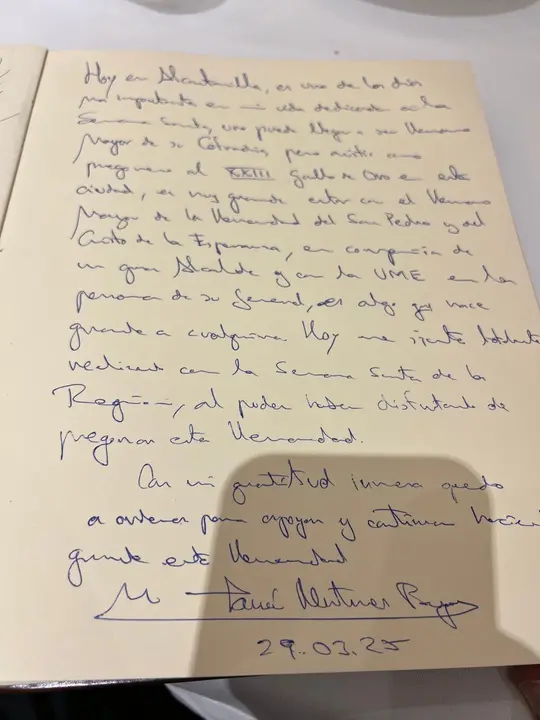 Hoy en Alcantarilla, es uno de los días
más importante en mi vida dedicada a la
Semana Santa, uno puede llegar a ser Hermano
Mayor de su Cofradía, pero asistir como
pregonero al XXIII gallo de Oro en esta
ciudad, es muy grande estar con el Hermano
Mayor de la Hermandad del San Pedro y del
Cristo de la Esperanza, en compañía de
un gran Alcalde y con la UME en la
persona de su General, es algo que hace
grande a cualquiera. Hoy me siento
realizado con la Semana Santa de la
Región, al poder haber disfrutado de
pregonar esta Hermandad.
Con mi gratitud inmensa quedo
a ordenes para apoyar y continuar
grande esta Hermandad
29.03.25